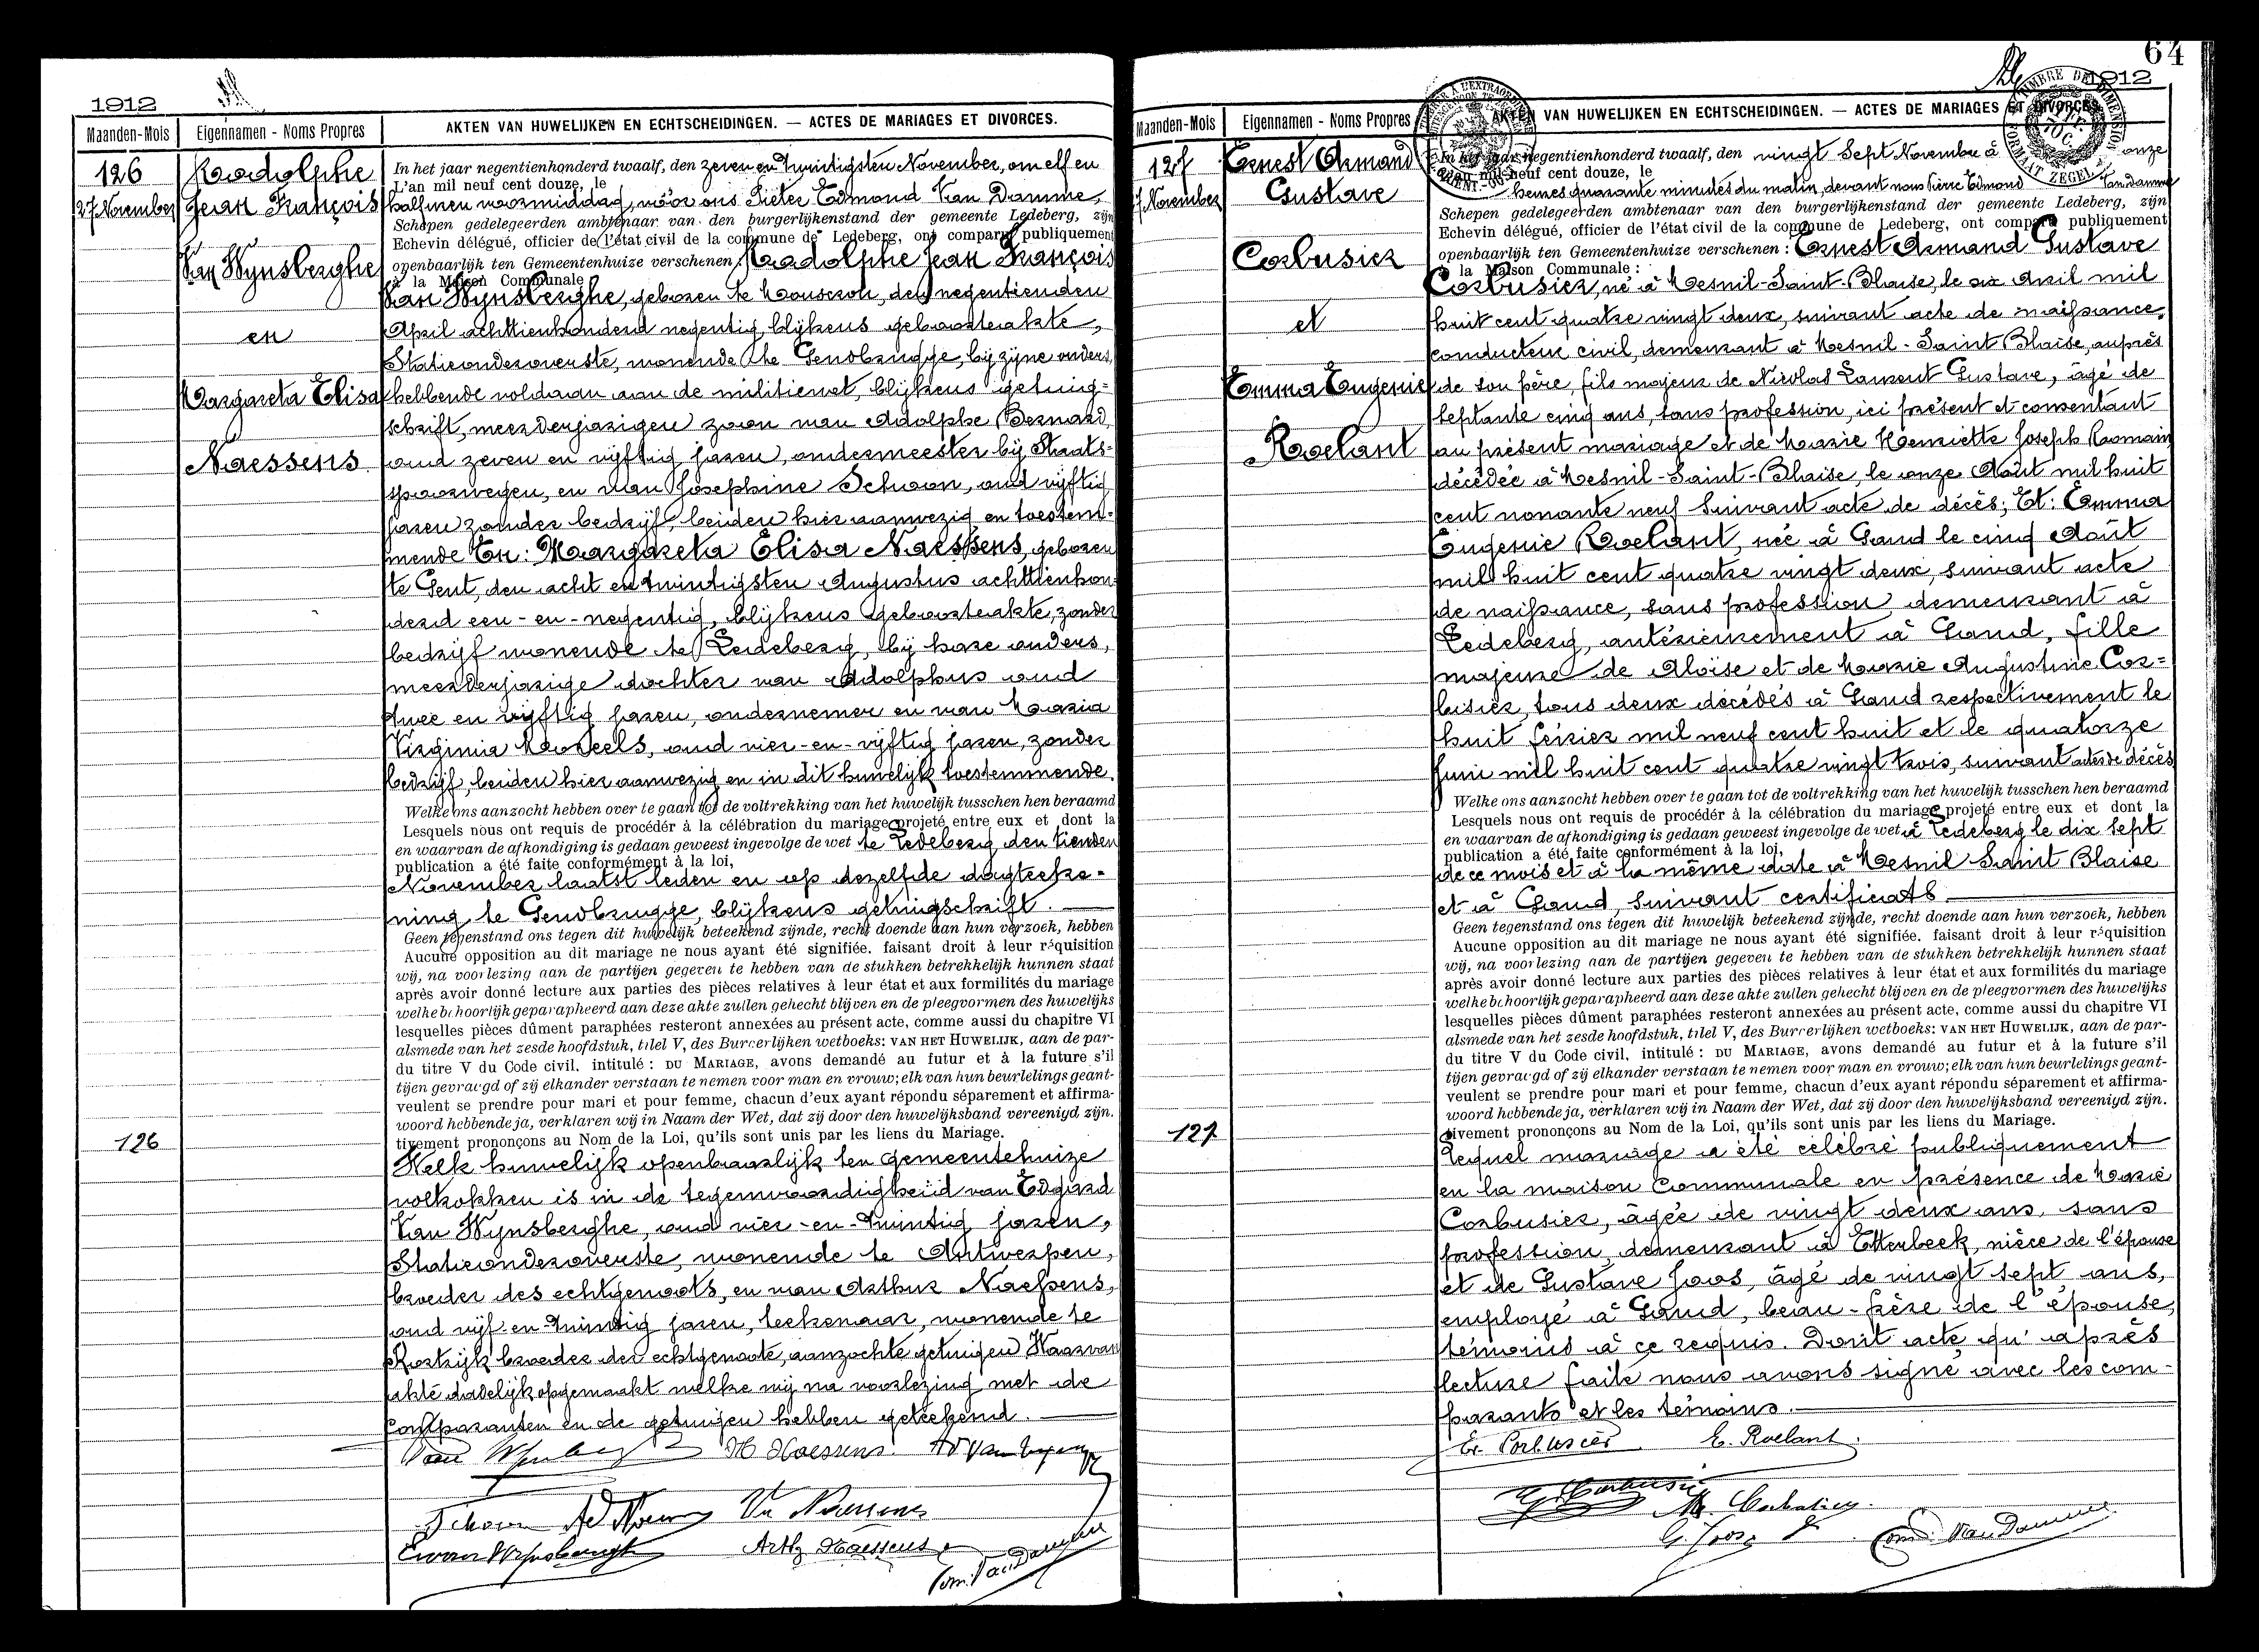 1912
Maanden-Mois
Eigennamen - Noms Propres
AKTEN VAN HUWELIJKEN EN ECHTSCHEIDINGEN. — ACTES DE MARIAGES ET DIVORCES.
126
27 November
Radolphe
Jean François
Van Wynsberghe
en
Margareta Elisa
Naessens
In het jaar negentienhonderd twaalf, den zeven en twintigsten November, om elf en
L'an mil neuf cent douze, le
half uren voormiddag, vóór ons Pieter Edmond Van Damme,
Schepen gedelegeerden ambtenaar van den burgerlijkenstand der gemeente Ledeberg, zijn
Echevin délégué, officier de l'état civil de la commune de Ledeberg, ont comparu publiquement
openbaarlijk ten Gemeentenhuize verschenen: Radolphe Jean François
à la Maison Communale
Van Wynsberghe, geboren te Mouscron, den negentienden
April achttienhonderd negentig, blijkens geboorteakte,
Statieonderoverste, wonende te Gendbrugge, bij zijne ouders,
hebbende voldaan aan de militiewet, blijkens getuig=
schrift, meerderjarigen zoon van Adolphe Bernard,
oud zeven en vijftig jaren, ondermeester bij Staats=
spoorwegen, en van Josephine Schoon, oud vijftig
jaren zonder bedrijf, beiden hier aanwezig en toestem=
mende En: Margareta Elisa Naessens, geboren
te Gent, den acht en twintigsten Augustus achttienhon=
derd een-en-negentig, blijkens geboorteakte, zonder
bedrijf wonende te Ledeberg, bij hare ouders,
meerderjarige dochter van Adolphus oud
twee en vijftig jaren, ondernemer en van Maria
Virginia Morteels, oud vier-en-vijftig jaren, zonder
bedrijf, beiden hier aanwezig en in dit huwelijk toestemmende.
Welke ons aanzocht hebben over te gaan tot de voltrekking van het huwelijk tusschen hen beraamd
Lesquels nous ont requis de procédér à la célébration du mariage projeté entre eux et dont la
en waarvan de afkondiging is gedaan geweest ingevolge de wet te Ledeberg den tienden
publication a été faite conformément à la loi,
November laatst leden en op dezelfde dagteeke=
ning te Gendbrugge, blijkens getuigschrift.
Geen tegenstand ons tegen dit huwelijk beteekend zijnde, recht doende aan hun verzoek, hebben
Aucune opposition au dit mariage ne nous ayant été signifiée. faisant droit à leur réquisition
wij, na voorlezing aan de partijen gegeven te hebben van de stukken betrekkelijk hunnen staat
après avoir donné lecture aux parties des pièces relatives à leur état et aux formilités du mariage
welke behoorlijk geparapheerd aan deze akte zullen gehecht blijven en de pleegvormen des huwelijks
lesquelles pièces dûment paraphées resteront annexées au présent acte, comme aussi du chapitre VI
alsmede van het zesde hoofdstuk, titel V, des Burgerlijken wetboeks: VAN HET HUWELIJK, aan de par-
du titre V du Code civil, intitulé : DU MARIAGE, avons demandé au futur et à la future s'il
tijen gevraagd of zij elkander verstaan te nemen voor man en vrouw; elk van hun beurtelings geant-
veulent se prendre pour mari et pour femme, chacun d'eux ayant répondu séparement et affirma-
woord hebbende ja, verklaren wij in Naam der Wet, dat zij door den huwelijksband vereenigd zijn.
tivement prononçons au Nom de la Loi, qu'ils sont unis par les liens du Mariage.
126
Welk huwelijk openbaarlijk ten gemeentehuize
voltrokken is in de tegenwoordigheid van Edgard
Van Wynsberghe, oud vier-en-twintig jaren,
Statieonderoverste, wonende te Antwerpen,
broeder des echtgenoots, en van Arthur Naessens,
oud vijf-en-twintig jaren, teekenaar, wonende te
Kortrijk broeder der echtgenoote, aanzochte getuigen Waarvan
akte dadelijk opgemaakt welke wij na voorlezing met de
comparanten en de getuigen hebben geteekend.
M Naessens
Schoon
Va Naessens
Arth Naessens
Edm. Van Damme
64
1912
Maanden-Mois
Eigennamen - Noms Propres
AKTEN VAN HUWELIJKEN EN ECHTSCHEIDINGEN. — ACTES DE MARIAGES ET DIVORCES.
127
27 November
Ernest Armand
Gustave
Corbusier
et
Emma Eugenie
Roelant
In het jaar negentienhonderd twaalf, den vingt sept Novembre à onze
L'an mil neuf cent douze, le
heures quarante minutes du matin, devant nous Pierre Edmond Van Damme
Schepen gedelegeerden ambtenaar van den burgerlijkenstand der gemeente Ledeberg, zijn
Echevin délégué, officier de l'état civil de la commune de Ledeberg, ont comparu publiquement
openbaarlijk ten Gemeentenhuize verschenen : Ernest Armand Gustave
à la Maison Communale :
Corbusier, né à Mesnil-Saint-Blaise, le six Avril mil
huit cent quatre vingt deux, suivant acte de naissance,
conducteur civil, demeurant à Mesnil-Saint Blaise, auprès
de son père, fils majeur de Nicolas Laurent Gustave, âgé de
septante cinq ans, sans profession, ici présent et consentant
au présent mariage et de Marie Henriette Joseph Romain
décédée à Mesnil-Saint-Blaise, le onze Août mil huit
cent nonante neuf suivant acte de décès; Et: Emma
Eugenie Roelant, née à Gand le cinq Août
mil huit cent quatre vingt deux, suivant acte
de naissance, sans profession demeurant à
Ledeberg, antérieurement à Gand, fille
majeure de Aloïse et de Marie Augustine Cor=
busier, tous deux décédés à Gand respectivement le
huit février mil neuf cent huit et le quatorze
Juin mil huit cent quatre vingt trois, suivant actes de décès
Welke ons aanzocht hebben over te gaan tot de voltrekking van het huwelijk tusschen hen beraamd
Lesquels nous ont requis de procédér à la célébration du mariage projeté entre eux et dont la
en waarvan de afkondiging is gedaan geweest ingevolge de wet à Ledeberg le dix sept
publication a été faite conformément à la loi,
de ce mois et à la même date à Mesnil Saint Blaise
et à Gand, suivant certificats
Geen tegenstand ons tegen dit huwelijk beteekend zijnde, recht doende aan hun verzoek, hebben
Aucune opposition au dit mariage ne nous ayant été signifiée. faisant droit à leur réquisition
wij, na voorlezing aan de partijen gegeven te hebben van de stukken betrekkelijk hunnen staat
après avoir donné lecture aux parties des pièces relatives à leur état et aux formilités du mariage
welke behoorlijk geparapheerd aan deze akte zullen gehecht blijven en de pleegvormen des huwelijks
lesquelles pièces dûment paraphées resteront annexées au présent acte, comme aussi du chapitre VI
alsmede van het zesde hoofdstuk, titel V, des Burgerlijken wetboeks: VAN HET HUWELIJK, aan de par-
du titre V du Code civil, intitulé : DU MARIAGE, avons demandé au futur et à la future s'il
tijen gevraagd of zij elkander verstaan te nemen voor man en vrouw; elk van hun beurtelings geant-
veulent se prendre pour mari et pour femme, chacun d'eux ayant répondu séparement et affirma-
woord hebbende ja, verklaren wij in Naam der Wet, dat zij door den huwelijksband vereenigd zijn.
tivement prononçons au Nom de la Loi, qu'ils sont unis par les liens du Mariage.
127
Lequel mariage a été célébré publiquement
en la maison Communale en présence de Marie
Corbusier, âgée de vingt deux ans, sans
profession, demeurant à Etterbeek, nièce de l'épouse
et de Gustave Joos, âgé de vingt sept ans,
employé à Gand, beau-frère de l'épouse,
témoins à ce requis. Dont acte qu'après
lecture faite nous avons signé avec les com-
parants et les témoins.
Er. Corbusier
E. Roelant.
G. Corbusier
M. Corbusier
G. Joos
Edm. Van Damme